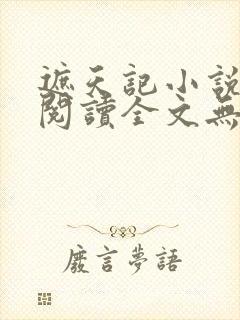 遮天記小說
閱讀全文無
廢言夢語